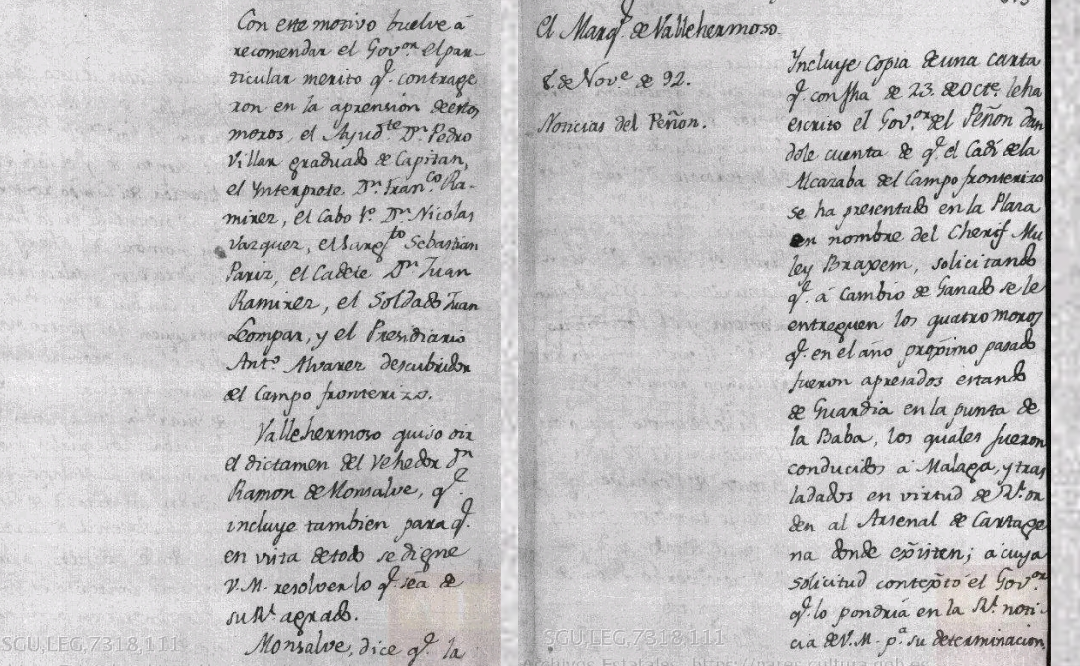 Con este motivo buelve á
recomendar el Gov.or el par-
ticular merito q.e contrage
ron en la aprension de estos
moros, el Ayud.te D.n Pedro
Villar graduado de Capitan,
el Ynterprete D.n Fran.co Ra-
mirez, el Cabo 1.º D.n Nicolas
Vazquez, el Sarg.to Sebastian
Pariz, el Cadete D.n Juan
Ramirez, el Soldado Juan
Lompar, y el Presidiario
Ant.º Alvarez descubridor
del Campo fronterizo.
Vallehermoso quiso oir
el dictamen del Vehedor D.n
Ramon de Monsalve, q.e
incluye tambien para q.e
en vista de todo se digne
V.M. resolver lo q.e sea de
su R.l agrado.
Monsalve, dice q.e la
SGU,LEG,7318,111
El Marq.s de Vallehermoso.
8 de Nov.e de 92.
Noticias del Peñon.
Yncluye Copia de una carta
q.e con fha de 23. de Oct.e le ha
escrito el Gov.or del Peñon dan
dole cuenta de q.e el Cadi de la
Alcazaba del Campo fronterizo
se ha presentado en la Plaza
en nombre del Cherif Mu
ley Braxem, solicitando
q.e á cambio de Ganado se le
entreguen los quatro moros
q.e en el año proximo pasado
fueron apresados estando
de Guardia en la punta de
la Baba, los quales fueron
conducidos á Malaga, y tras
ladados en virtud de R.l or
den al Arsenal de Cartage
na donde existen; á cuya
solicitud contextó el Gov.or
q.e lo pondria en la R.l noti-
cia de V.M. p.a su determinacion,
SGU,LEG,7318,111